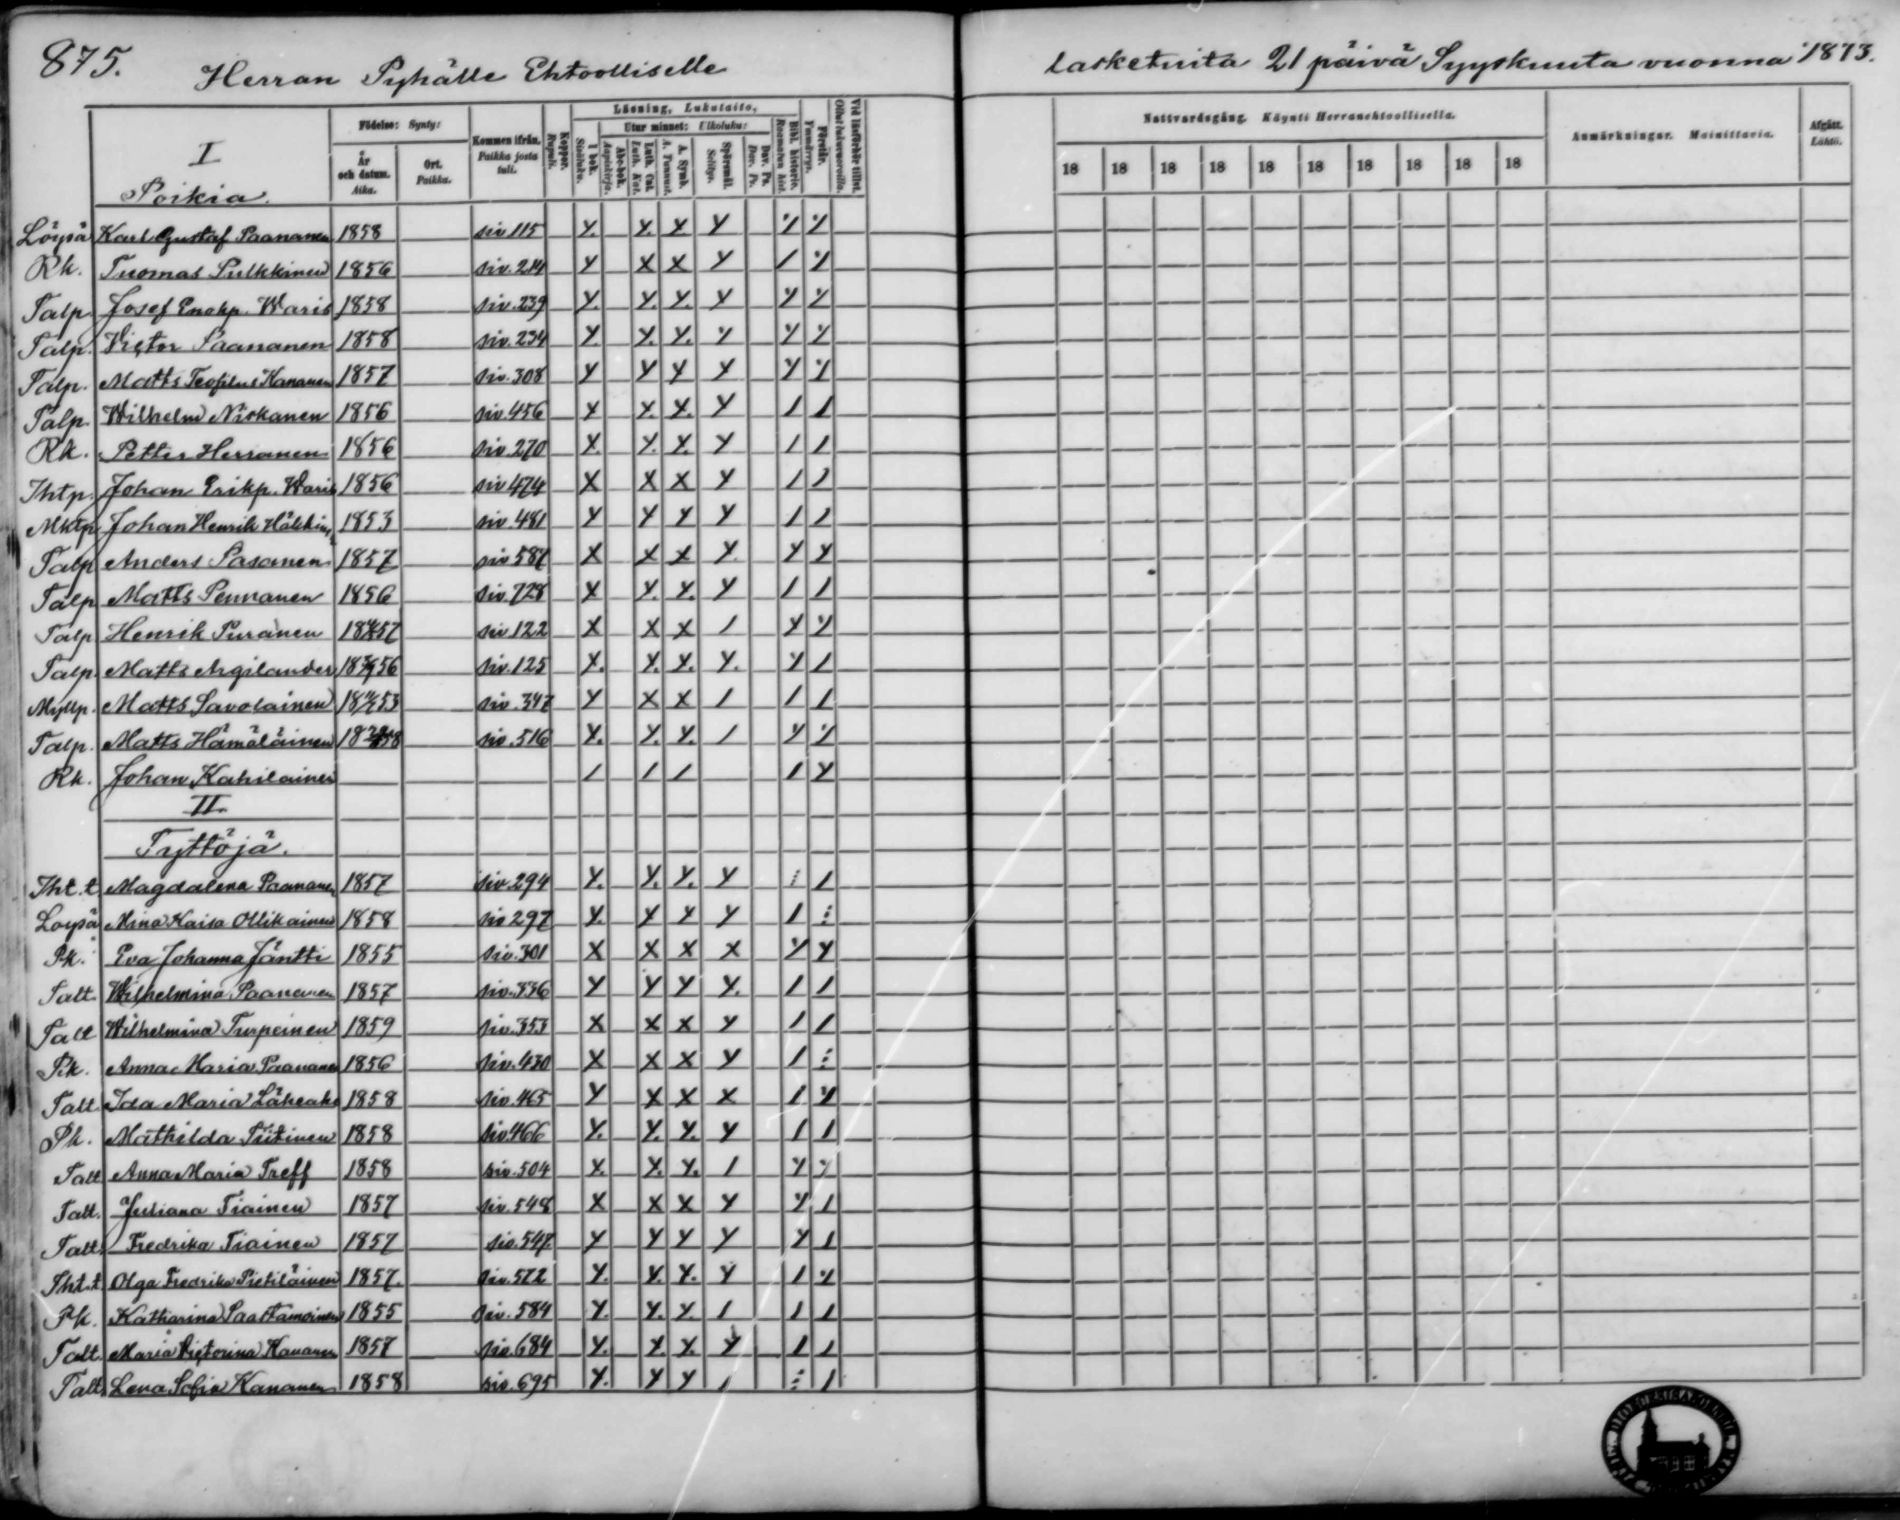 875.
Herran Pyhälle Ehtoolliselle lasketuita 21 päivä Syyskuuta vuonna 1873.
Födelse: Synty:
År och datum. Aika.
Ort. Paikka.
Kommen ifrån. Paikka josta tuli.
Koppor. Rupuli.
Läsning, Lukutaito.
I bok. Sisäluku.
Utur minnet: Ulkoluku:
Abc-bok. Aapiskirja.
Luth. Cat. Luth. Kat.
A. Symb. A. Tunnust.
Spörsmål. Selitys.
Dav. Ps. Dav. Ps.
Bibl. historia. Raamatun hist.
Förstår. Ymmärrys.
Vid läsförhör tillst. Ollut lukuvuoroilla.
Nattvardsgång. Käynti Herranehtoollisella.
18 18 18 18 18 18 18 18 18 18
Anmärkningar. Mainittavia.
Afgått. Lähtö.
I
Poikia.
Löysä Karl Gustaf Paananen 1858 siv 115
Rk. Tuomas Pulkkinen 1856 siv. 214
Talp. Josef Enokp. Waris 1858 siv. 239
Talp. Victor Paananen 1858 siv. 234
Talp. Matts Teofilus Kananen 1857 siv. 308
Talp. Wilhelm Niskanen 1856 siv. 456
Rk. Petter Herranen 1856 siv. 270
Thtp. Johan Erikp. Waris 1856 siv 474
Johan Henrik 1853 siv. 481
Talp Anders Pasanen 1857 siv 587
Talp Matts Pennanen 1856 siv. 728
Talp Henrik Puranen 57 siv 122
Talp. Matts Argilander 56 siv. 125
Myllp. Matts Savolainen 53 siv. 347
Talp. Matts Hämäläinen 58 siv. 516
Rk. Johan Kahilainen
II.
Tyttöjä.
Tht.t Magdalena Paananen 1857 siv. 294
Löysä Mina Kaisa Ollikainen 1858 siv 297
Pk. Eva Johanna Jäntti 1855 siv. 301
Talt. Wilhelmina Paananen 1857 siv. 336
Talt Wilhelmina Turpeinen 1859 siv. 353
Pk. Anna Maria Paananen 1856 siv. 430
Talt Ida Maria 1858 siv. 465
Pk. Mathilda Piitinen 1858 siv 466
Talt Anna Maria Treff 1858 siv. 504
Talt. Juliana Tiainen 1857 siv. 548
Talt. Fredrika Tiainen 1857 siv. 547.
Tht.t. Olga Fredrika Pietiläinen 1857. siv. 572
Pk. Katharina Saastamoinen 1855 siv. 584
Talt. Maria Victorina Kananen 1857 siv. 684
Talt. Lena Sofia Kananen 1858 siv. 695